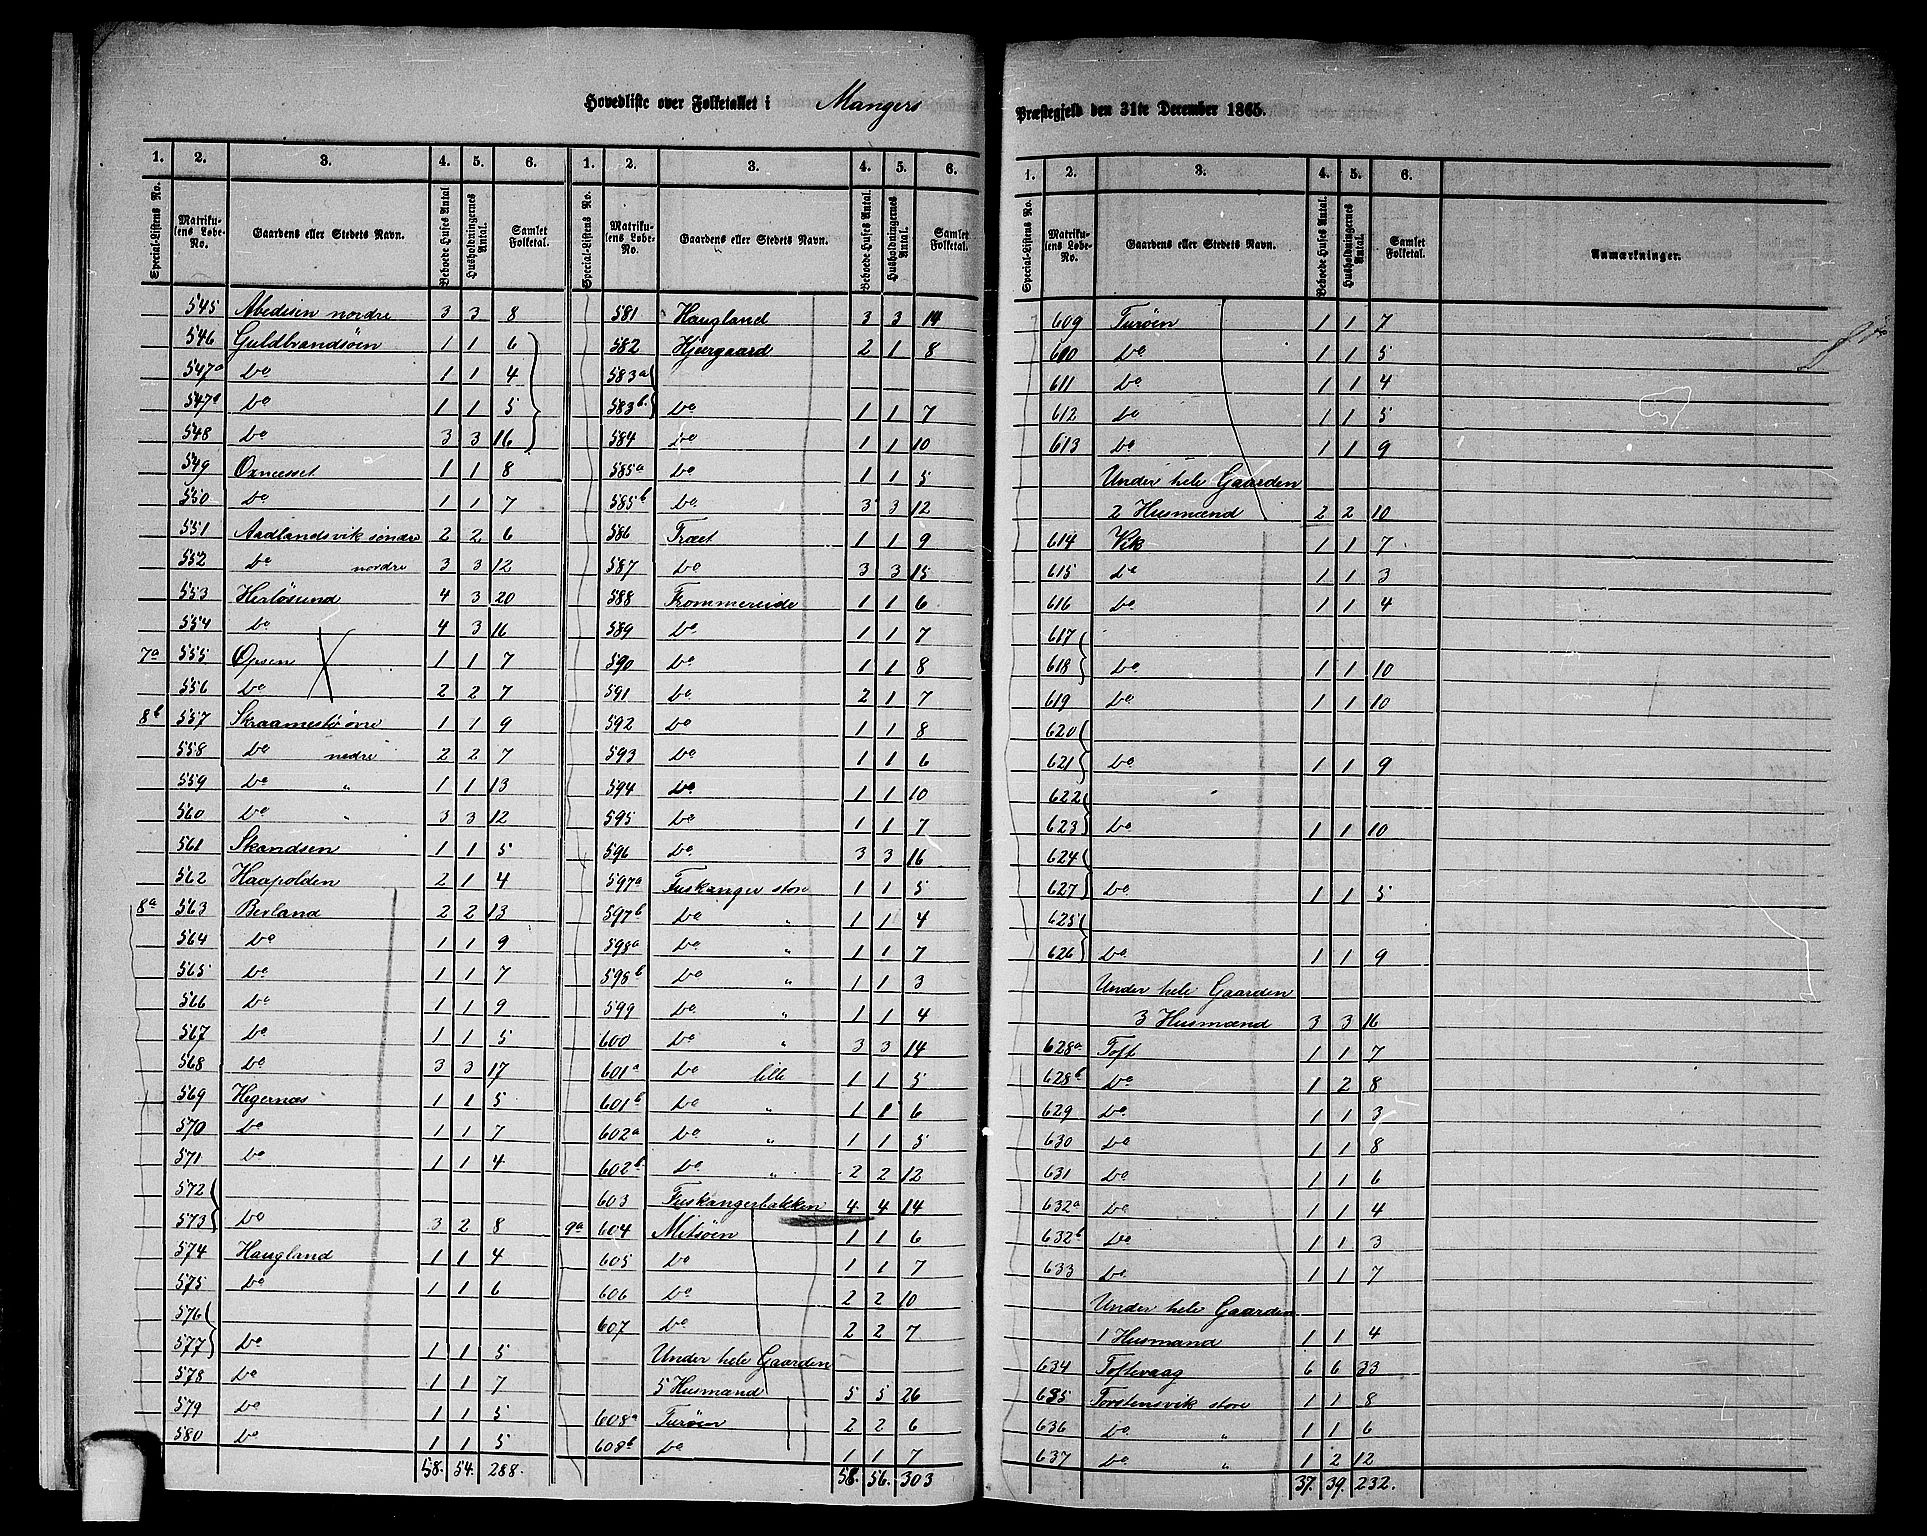 Hovedliste over Folketallet i Mangers
1. 2. 3. 4. 5. 6.
Special-Listens No. Matrikulens Løbe-No. Gaardens eller Stedets Navn. Beboede Huses Antal Husholdningernes Antal. Samlet Folketal.
545 Abedisen nordre 3 3 8
546 Guldbrandsøen 1 1 6
547a Do 1 1 4
547a Do 1 1 5
548 Do 3 3 16
549 Oxnesset 1 1 8
550 Do 1 1 7
551 Aadlandsvik søndre 2 2 6
552 Do nordre 3 3 12
553 Herløsund 4 3 20
554 Do 4 3 16
7a 555 Opsen 1 1 7
556 Do 2 2 7
8b 557 Skraamestø øvre 1 1 9
558 Do nedre 2 2 7
559 Do " 1 1 13
560 Do " 3 3 12
561 Skandsen 1 1 5
562 Haapolden 2 1 4
8a 563 Berland 2 2 13
564 Do 1 1 9
565 Do 1 1 7
566 Do 1 1 9
567 Do 1 1 5
568 Do 3 3 17
569 Hegernæs 1 1 5
570 Do 1 1 7
571 Do 1 1 4
572
573 Do 3 2 8
574 Haugland 1 1 4
575 Do 1 1 6
576
577 Do 1 1 5
578 Do 1 1 7
579 Do 1 1 5
580 Do 1 1 5
58. 54. 288.
1. 2. 3. 4. 5. 6.
Special-Listens No. Matrikulens Løbe-No. Gaardens eller Stedets Navn. Beboede Huses Antal. Husholdningernes Antal. Samlet Folketal.
581 Haugland 3 3 14
582 Hjertgaard 2 1 8
583a
583b Do 1 1 7
584 Do 1 1 10
585a Do 1 1 5
585b Do 3 3 12
586 Træet 1 1 9
587 Do 3 3 15
588 Frommereide 1 1 6
589 Do 1 1 7
590 Do 1 1 8
591 Do 2 1 7
592 Do 1 1 8
593 Do 1 1 6
594 Do 1 1 10
595 Do 1 1 7
596 Do 3 3 16
597a Fuskanger store 1 1 5
597b Do " 1 1 4
598a Do " 1 1 7
598b Do " 1 1 3
599 Do " 1 1 4
600 Do " 3 3 14
601a Do lille 1 1 5
601b Do " 1 1 6
602a Do " 1 1 5
602b Do " 2 2 12
603 Fuskangerbakken 4 4 14
9a 604 Mitsøen 1 1 6
605 Do 1 1 7
606 Do 2 2 10
607 Do 2 2 7
Under hele Gaarden
5 Husmænd 5 5 26
608a Turøen 2 2 6
608b Do 1 1 7
58. 56. 303
Præstegjeld den 31te December 1865.
1. 2. 3. 4. 5. 6.
Special-Listens No. Matrikulens Løbe-No. Gaardens eller Stedets Navn. Beboede Huses Antal. Husholdningernes Antal. Samlet Folketal. Anmærkninger.
609 Turøen 1 1 7
610 Do 1 1 5
611 Do 1 1 4
612 Do 1 1 5
613 Do 1 1 9
Under hele Gaarden
2 Husmænd 2 2 10
614 Vik 1 1 7
615 Do 1 1 3
616 Do 1 1 4
617
618 Do 1 1 10
619 Do 1 1 10
620
621 Do 1 1 9
622
623 Do 1 1 10
624
627 Do 1 1 5
625
626 Do 1 1 9
Under hele Gaarden
3 Husmænd 3 3 16
628a Toft 1 1 7
628b Do 1 2 8
629 Do 1 1 3
630 Do 1 1 8
631 Do 1 1 6
632a Do 1 1 4
632b Do 1 1 3
633 Do 1 1 7
Under hele Gaarden
1 Husmand 1 1 4
634 Toftevaag 6 6 23
635 Torstensvik store 1 1 8
636 Do " 1 1 6
637 Do " 1 2 12
37. 39. 232.